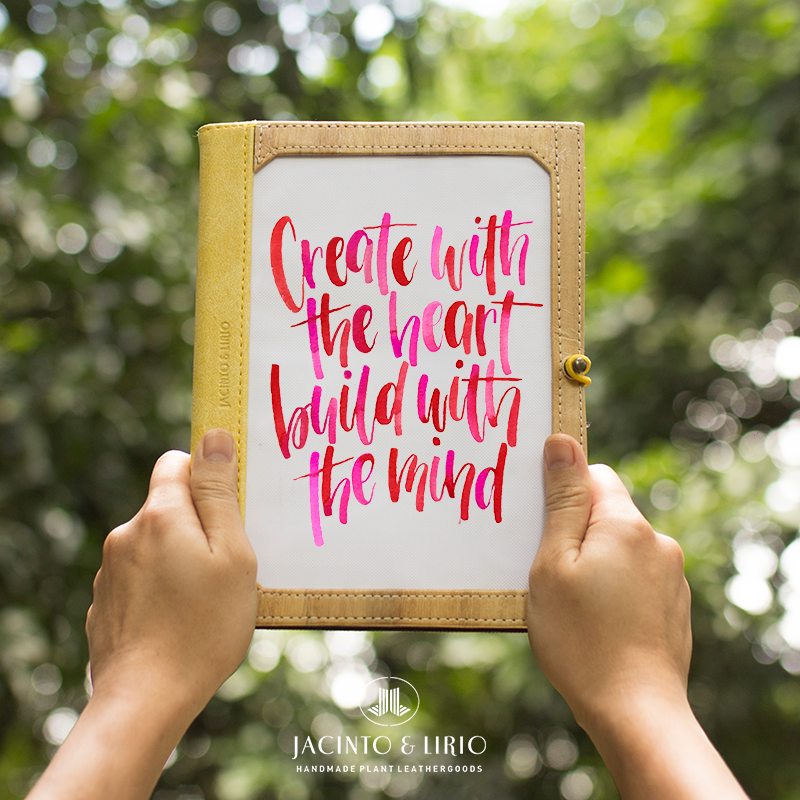 Create with
the heart
build with
the mind
JACINTO & LIRIO
JACINTO & LIRIO
HANDMADE PLANT LEATHERGOODS